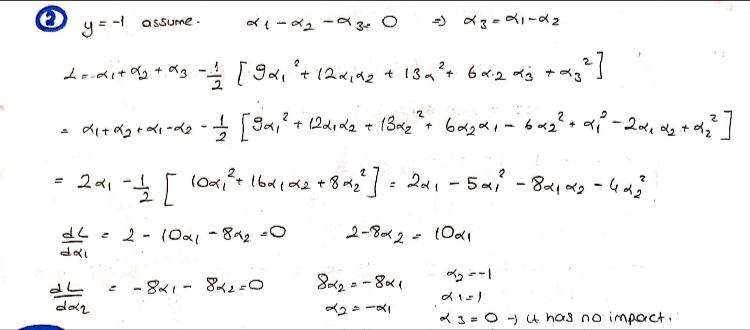 ② y = -1 assume. α1 - α2 - α3 = 0 ⇒ α3 = α1 - α2
L = α1 + α2 + α3 - 1/2 [9α1² + 12α1α2 + 13α² + 6α.2 α3 + α3²]
= α1 + α2 + α1 - α2 - 1/2 [9α1² + 12α1α2 + 13α2² + 6α2α1 - 6α2² + α1² - 2α1 α2 + α2²]
= 2α1 - 1/2 [10α1² + 16α1α2 + 8α2²] = 2α1 - 5α1² - 8α1α2 - 4α2²
dL/dα1 = 2 - 10α1 - 8α2 = 0 2 - 8α2 = 10α1
dL/dα2 = -8α1 - 8α2 = 0 8α2 = -8α1 α2 = -1
α2 = -α1 α1 = 1
α3 = 0 → it has no impact.